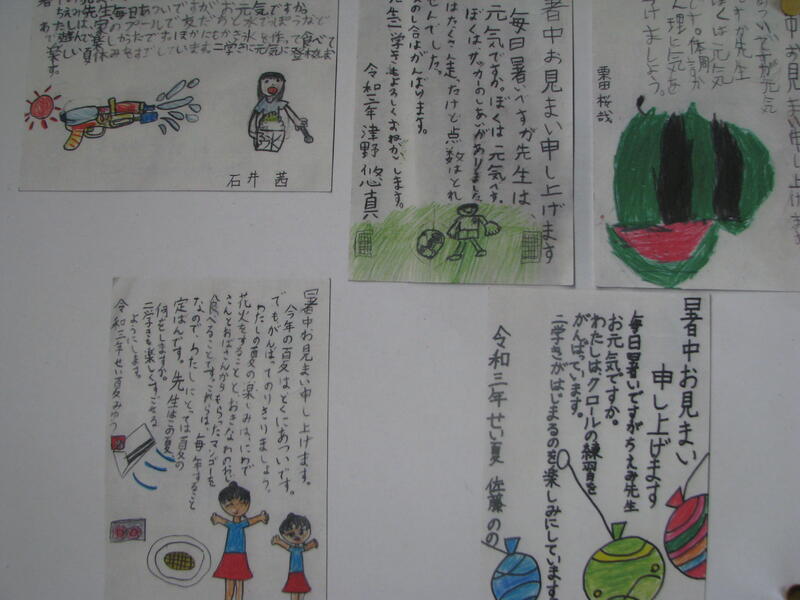 毎日あついですがお元気ですか。
プールで友だちと水でっぽうなど
楽しかったです。ほかにもかき氷を作って食べて
夏休みをすごしています。二学きに元気に
氷
石井 茜
暑中お見まい申し上げます
毎日暑いですが先生は、
元気ですか。ぼくは元気です。
ぼくは、サッカーのしあいがありました。
はたくさん走ったけど点数はとれ
せんでした。
のしあいはがんばります。
先生二学きもよろしくおねがいします。
令和三年 津野悠真
中お見まい申し上げます
あついですが元気
ですか先生
ぼくは元気
です。体調
ん理に気を
けましょう。
栗田桜哉
暑中お見まい申し上げます。
今年の夏はとくにあついです。
でもがんばってのりきりましょう。
わたしの夏の楽しみは、にわで
花火をすることと、おきなわのおじ
さんとおばさんからもらったマンゴーを
食べることです。これらは、毎年すること
なので、わたしにとっては夏の
定ばんです。先生はこの夏、
何をしますか。
二学きも楽しくすごせる
ようにします。
令和三年せい夏みゆう
暑中お見まい
申し上げます
毎日暑いですがちえみ先生
お元気ですか。
わたしは、クロールの練習を
がんばっています。
二学きがはじまるのを楽しみにしています。
令和三年せい夏 佐藤のの